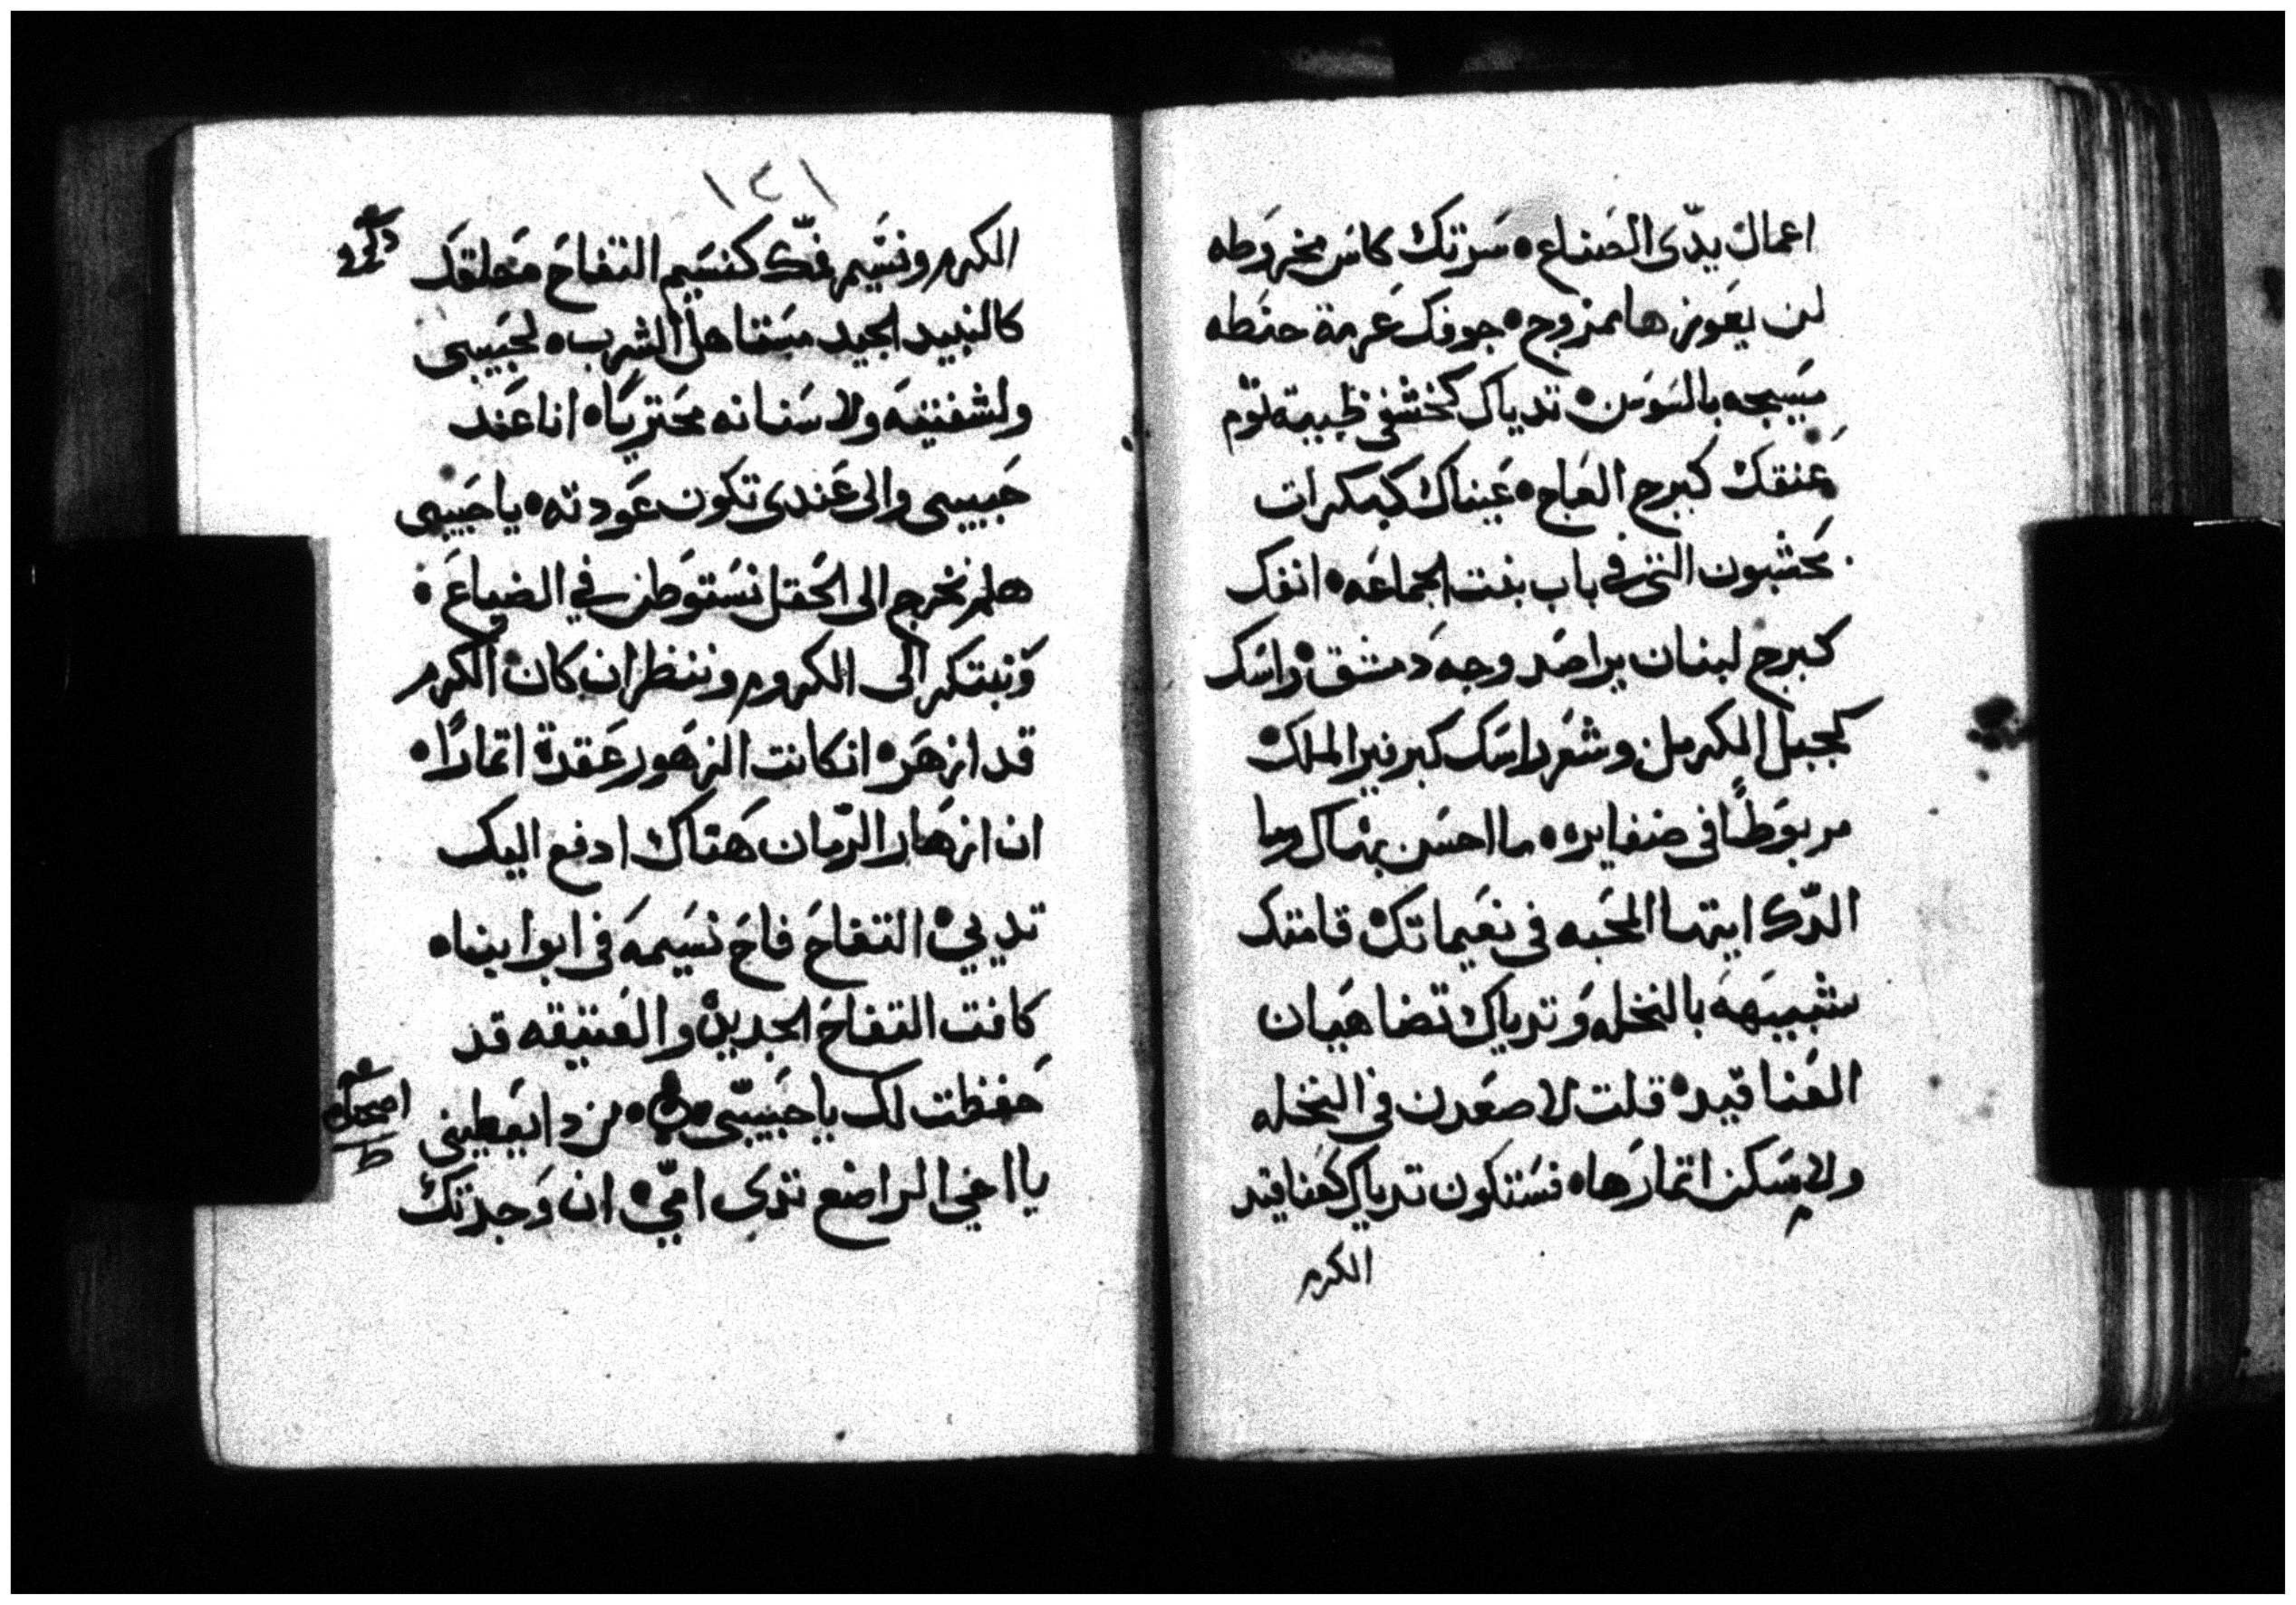 اعمال يدّى الصناع ۰ سرتك كاس مخروطه
لن يعوزها ممزوج ۰ جوفك عرمة حنطه
مسيجه بالسوسن ۰ تدياك كخشفى ظبيه توم
عنقك كبرج العاج ۰ عيناك كبكرات
حشبون التى فى باب بنت الجماعه ۰ انفك
كبرج لبنان يراصد وجه دمشق ۰ راسك
كجبل الكرمل وشعر راسك كبرفير الملك
مربوطًا فى ضفايره ۰ ما احسن بهاك وما
الدّك ايتها المحبه فى نعيماتك ۰ قامتك
شبيهه بالنخله وتدياك تضاهيان
العناقيد ۰ قلت لاصعدن فى النخله
ولامسكن اتمارها ۰ فستكون تدياك كعناقيد
الكرم
١٢١
الكرم ونسيم فمّك كنسيم التفاح حلقك
كالنبيد الجيد مستاهل الشرب ۰ لحبيبى
ولشفتيه ولاسنانه محتريًا ۰ انا عند
حبيبى والى عندى تكون عودته ۰ يا حبيبى
هلم نخرج الى الحقل نستوطن فى الضياع ۰
ونبتكر الى الكروم وننظر ان كان الكرم
قد ازهر ۰ ان كانت الزهور عقدة اتمارًا ۰
ان ازهار الرّمان هناك ادفع اليك
تديي ۰ التفاح فاح نسيمه فى ابوابنا ۰
كافت التفاح الجديد والعتيقه قد
حفظت لك يا حبيبى ۰ ۰ من دا يعطينى
يا اخى الراضع تدى امّي ۰ ان وجدتك